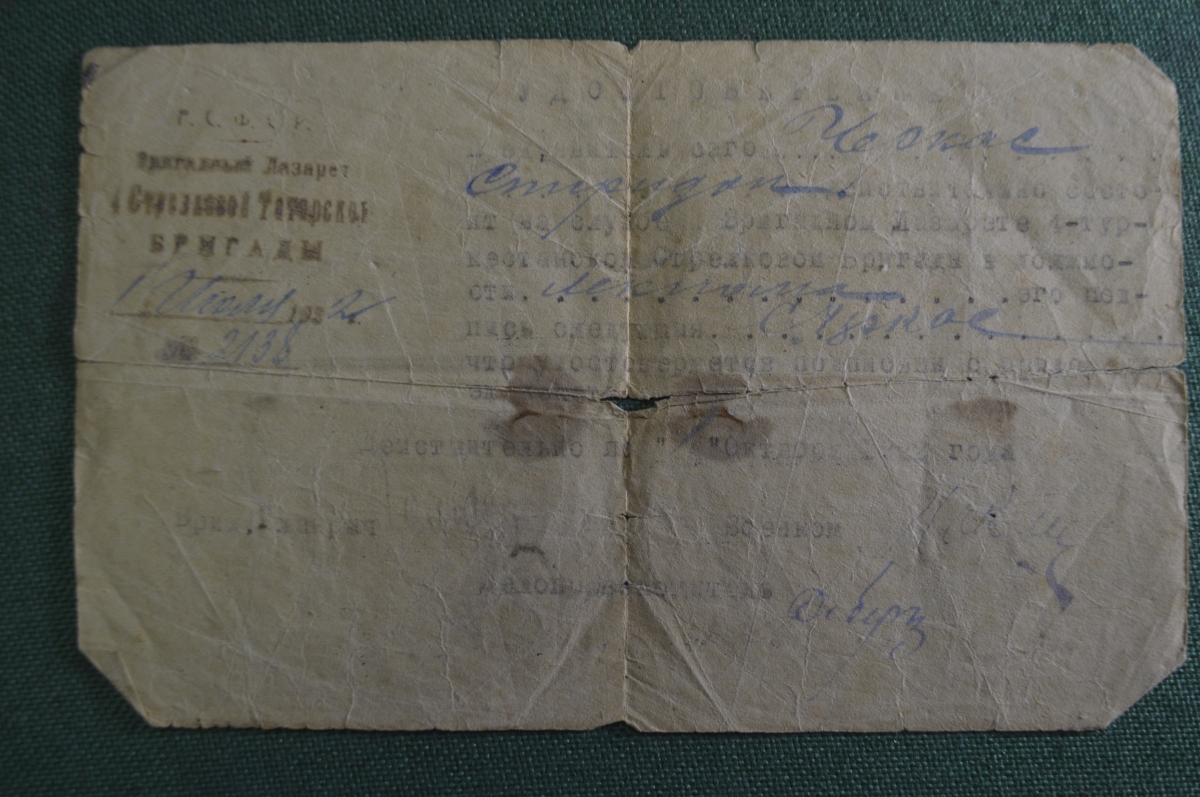 Р. С. Ф. С. Р.
Бригадный Лазарет
4 Стрелковой Татарской
БРИГАДЫ
1 Июля 1922 г.
№ 2138
УДОСТОВЕРЕНИЕ
Пред'явитель сего Чокас
Спиридон действительно состо-
ит на службе Бригадном Лазарете 4-тур-
кестанской Стрелковой Бригады в должно-
сти лекпома его под-
пись следующая С. Чокас
что удостоверяется подписями с прило-
Действительно по " 1 "Октября 1922 года
Военком
Делопроизводитель